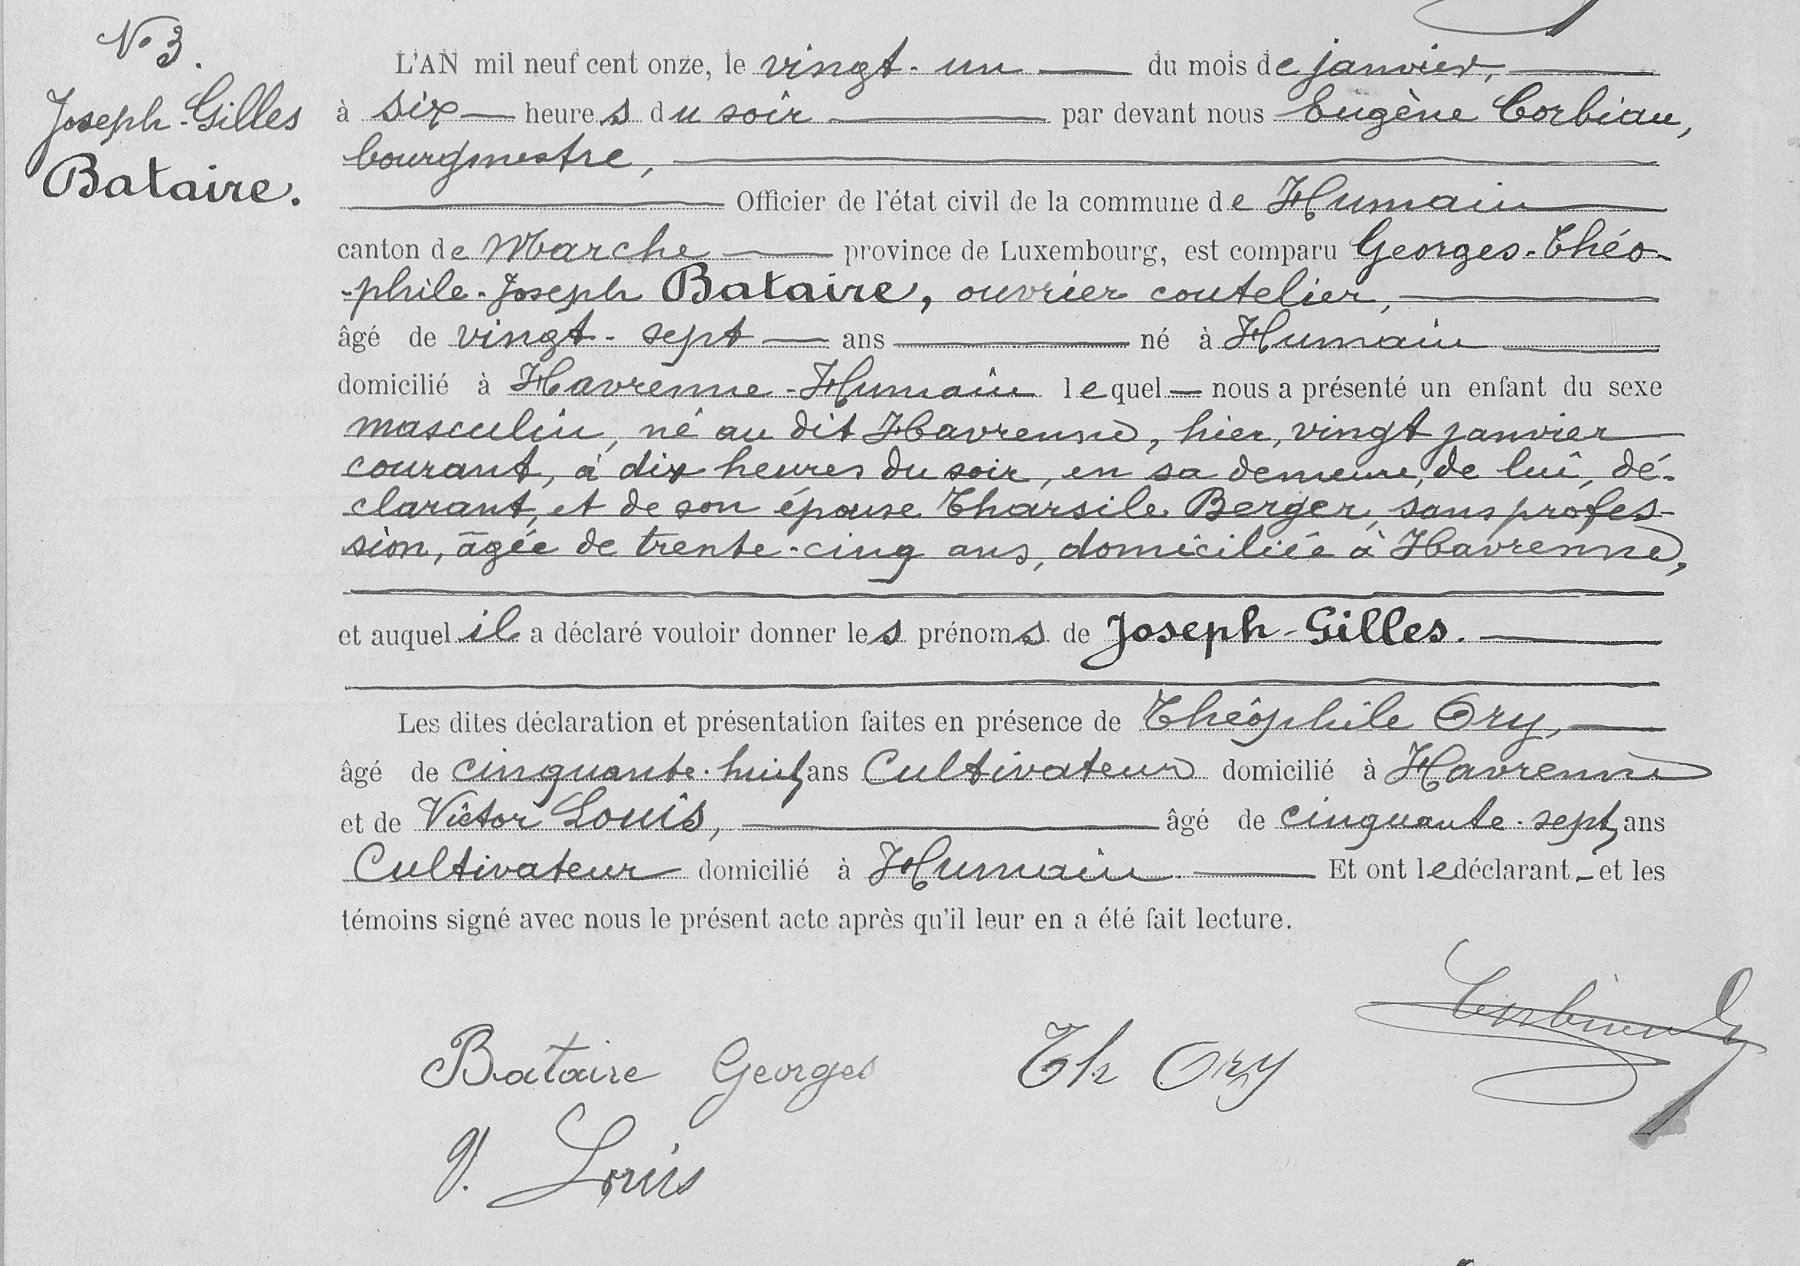 N° 3.
Joseph-Gilles
Bataire.
L'AN mil neuf cent onze, le vingt-un du mois de janvier,
à six heures du soir par devant nous Eugène Corbiau,
bourgmestre,
Officier de l'état civil de la commune de Humain
canton de Marche province de Luxembourg, est comparu Georges-Théo-
-phile-Joseph Bataire, ouvrier coutelier,
âgé de vingt-sept ans né à Humain
domicilié à Havrenne-Humain lequel nous a présenté un enfant du sexe
masculin, né au dit Havrenne, hier, vingt janvier
courant, à dix heures du soir, en sa demeure, de lui, dé-
clarant, et de son épouse Tharsile Berger, sans profes-
sion, âgée de trente-cinq ans, domiciliée à Havrenne,
et auquel il a déclaré vouloir donner les prénoms de Joseph-Gilles.
Les dites déclaration et présentation faites en présence de Théophile Ory,
âgé de cinquante-huit ans Cultivateur domicilié à Havrenne
et de Victor Louis, âgé de cinquante-sept ans
Cultivateur domicilié à Humain. Et ont le déclarant et les
témoins signé avec nous le présent acte après qu'il leur en a été fait lecture.
Corbiau
Bataire Georges Th Ory
V. Louis